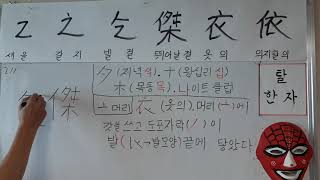 乙 之 乞 傑 衣 依
새 을 갈 지 빌 걸 뛰어날 걸 옷 의 의지할 의
211
夕(저녁 석). 十(왕십리 십)
木(목동 목). 나이트 클럽
傑
亠 머리 衣(옷 의). 머리(亠)에
갓을 쓰고 도포자락(丿)이
발( → 발모양) 끝에 닿았다
탈
한 자